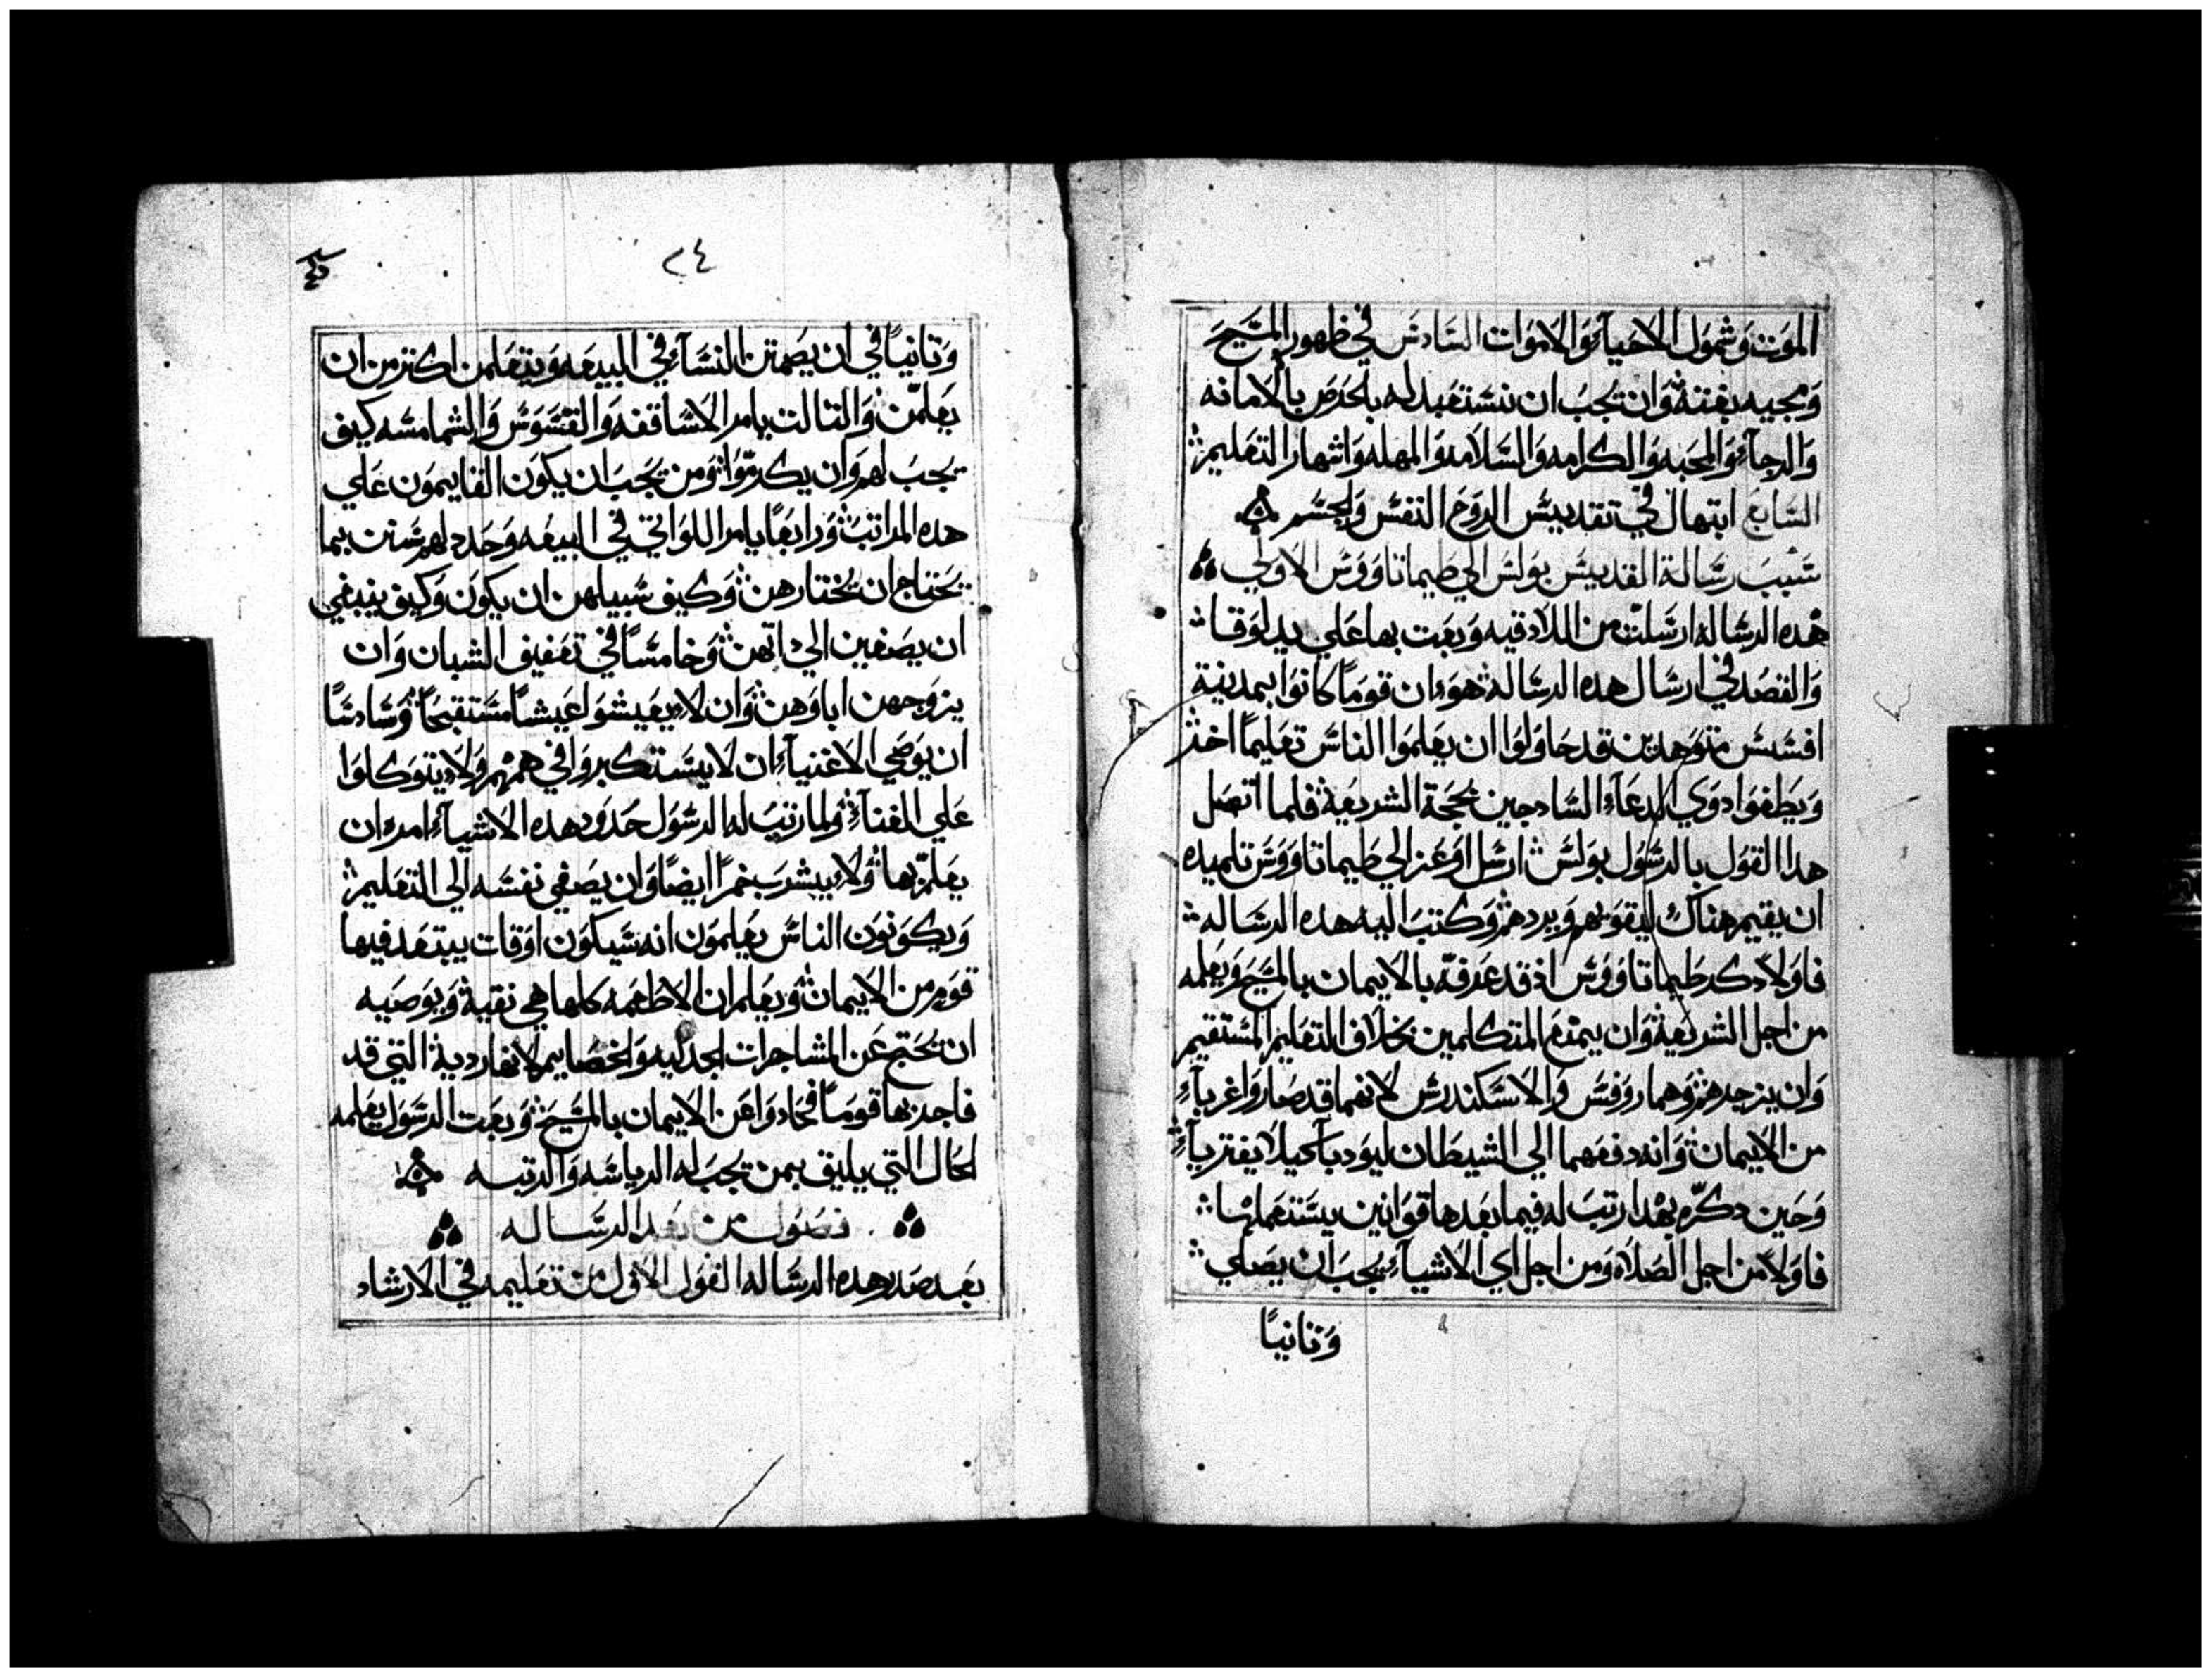 الموت وشمول الاحيآء والاموات السادس في ظهور المسيح
ومجيه بغتة وان يجب ان نستقبدله بالحرص بالامانه
والرجآء والمحبه والكرامه والسلامه والمهله واشهار التعليم
السابع ابتهال في تقديس الروح النفس والجسم
سبب رسالة القديس بولس الي طيماتاووس الاولي
هده الرساله ارسلت من اللادقيه وبعت بها علي يد لوقا
والقصد في ارسال هده الرساله هو ان قومًا كانوا بمدنية
افسس متوحدين قد حاولوا ان يعلموا الناس تعليمًا اخر
ويطغوا دوي الدعآء السادجين بحجة الشريعة فلما اتصل
هدا القول بالرسول بولس ارسل اوعز الي طيماتاووس تلميده
ان يقيم هناك ليقوبهم ويردهم وكتب اليه هده الرساله
فاولا دكر طيماتاووس اذ قد عرفه بالايمان بالمسيح ويعلمه
من اجل الشريعة وان يمتع المتكلمين بخلاف التعليم المستقيم
وان يزجرهم وهما روفس والاسكندرس لانهما قد صاروا غربآء
من الايمان وانه دفعهما الي الشيطان ليودبا كيلا يفتريآء
وحين دكره بهدا رتب له فيما بعدها قوانين يستعملها
فاولا من اجل الصلاه ومن اجل اي الاشيآء يجب ان يصلي
وتانيًا
٢٤
وتانيًا في ان يصمتن النسآء في البيعه ويتعلمن اكتر من ان
يعلمن والتالت يامر الاساقفه والقسوس والشمامسه كيف
يجب لهم وان يكرموا ومن يجب ان يكون القايمون علي
هده المراتب ورابعًا يامر اللواتي في البيعه وحدد لهم سنن بما
يحتاج ان يختارهن وكيف سبيلهن ان يكون وكيف ينبغي
ان يصغين الي داتهن وخامسًا في تعفيف الشبان وان
يزوجهن اباوهن وان لا يعيشوا عيشًا مستقبحًا وسادسًا
ان يوصي الاغنيآء ان لا يستكبروا في هممهم ولا يتوكلوا
علي الغنآء ولما رتب له الرسول حدود هده الاشيآء امره ان
يعلم بها ولا يشرب خمرًا ايضًا وان يصغي نفسه الي التعليم
ويكونون الناس يعلمون انه سيكون اوقات يبتعد فيها
قوم من الايمان ويعلم ان الاطعمه كلها هي نقية ويوصيه
ان يحتج عن المشاجرات الجدليه والخصايم لانها ردية التي قد
فاجد بها قومًا فحادوا عن الايمان بالمسيح وبعت الرسول يعلمه
الحال التي يليق بمن يجب له الرياسه والرتبه
فصول من بعد الرساله
بعد صدر هده الرساله القول الاول من تعليمه في الارشاد